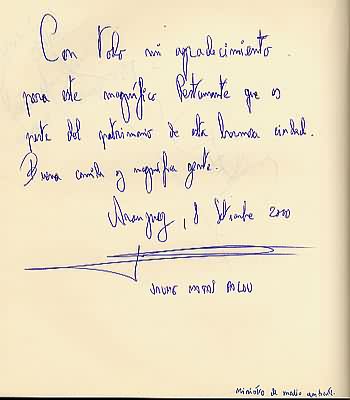 Con todo mi agradecimiento
para este magnífico Restaurante que es
parte del patrimonio de esta hermosa ciudad.
Buena comida y magnífica gente.
Aranjuez, 8 Setiembre 2000
JAUME MATAS PALOU
Ministro de medio ambiente